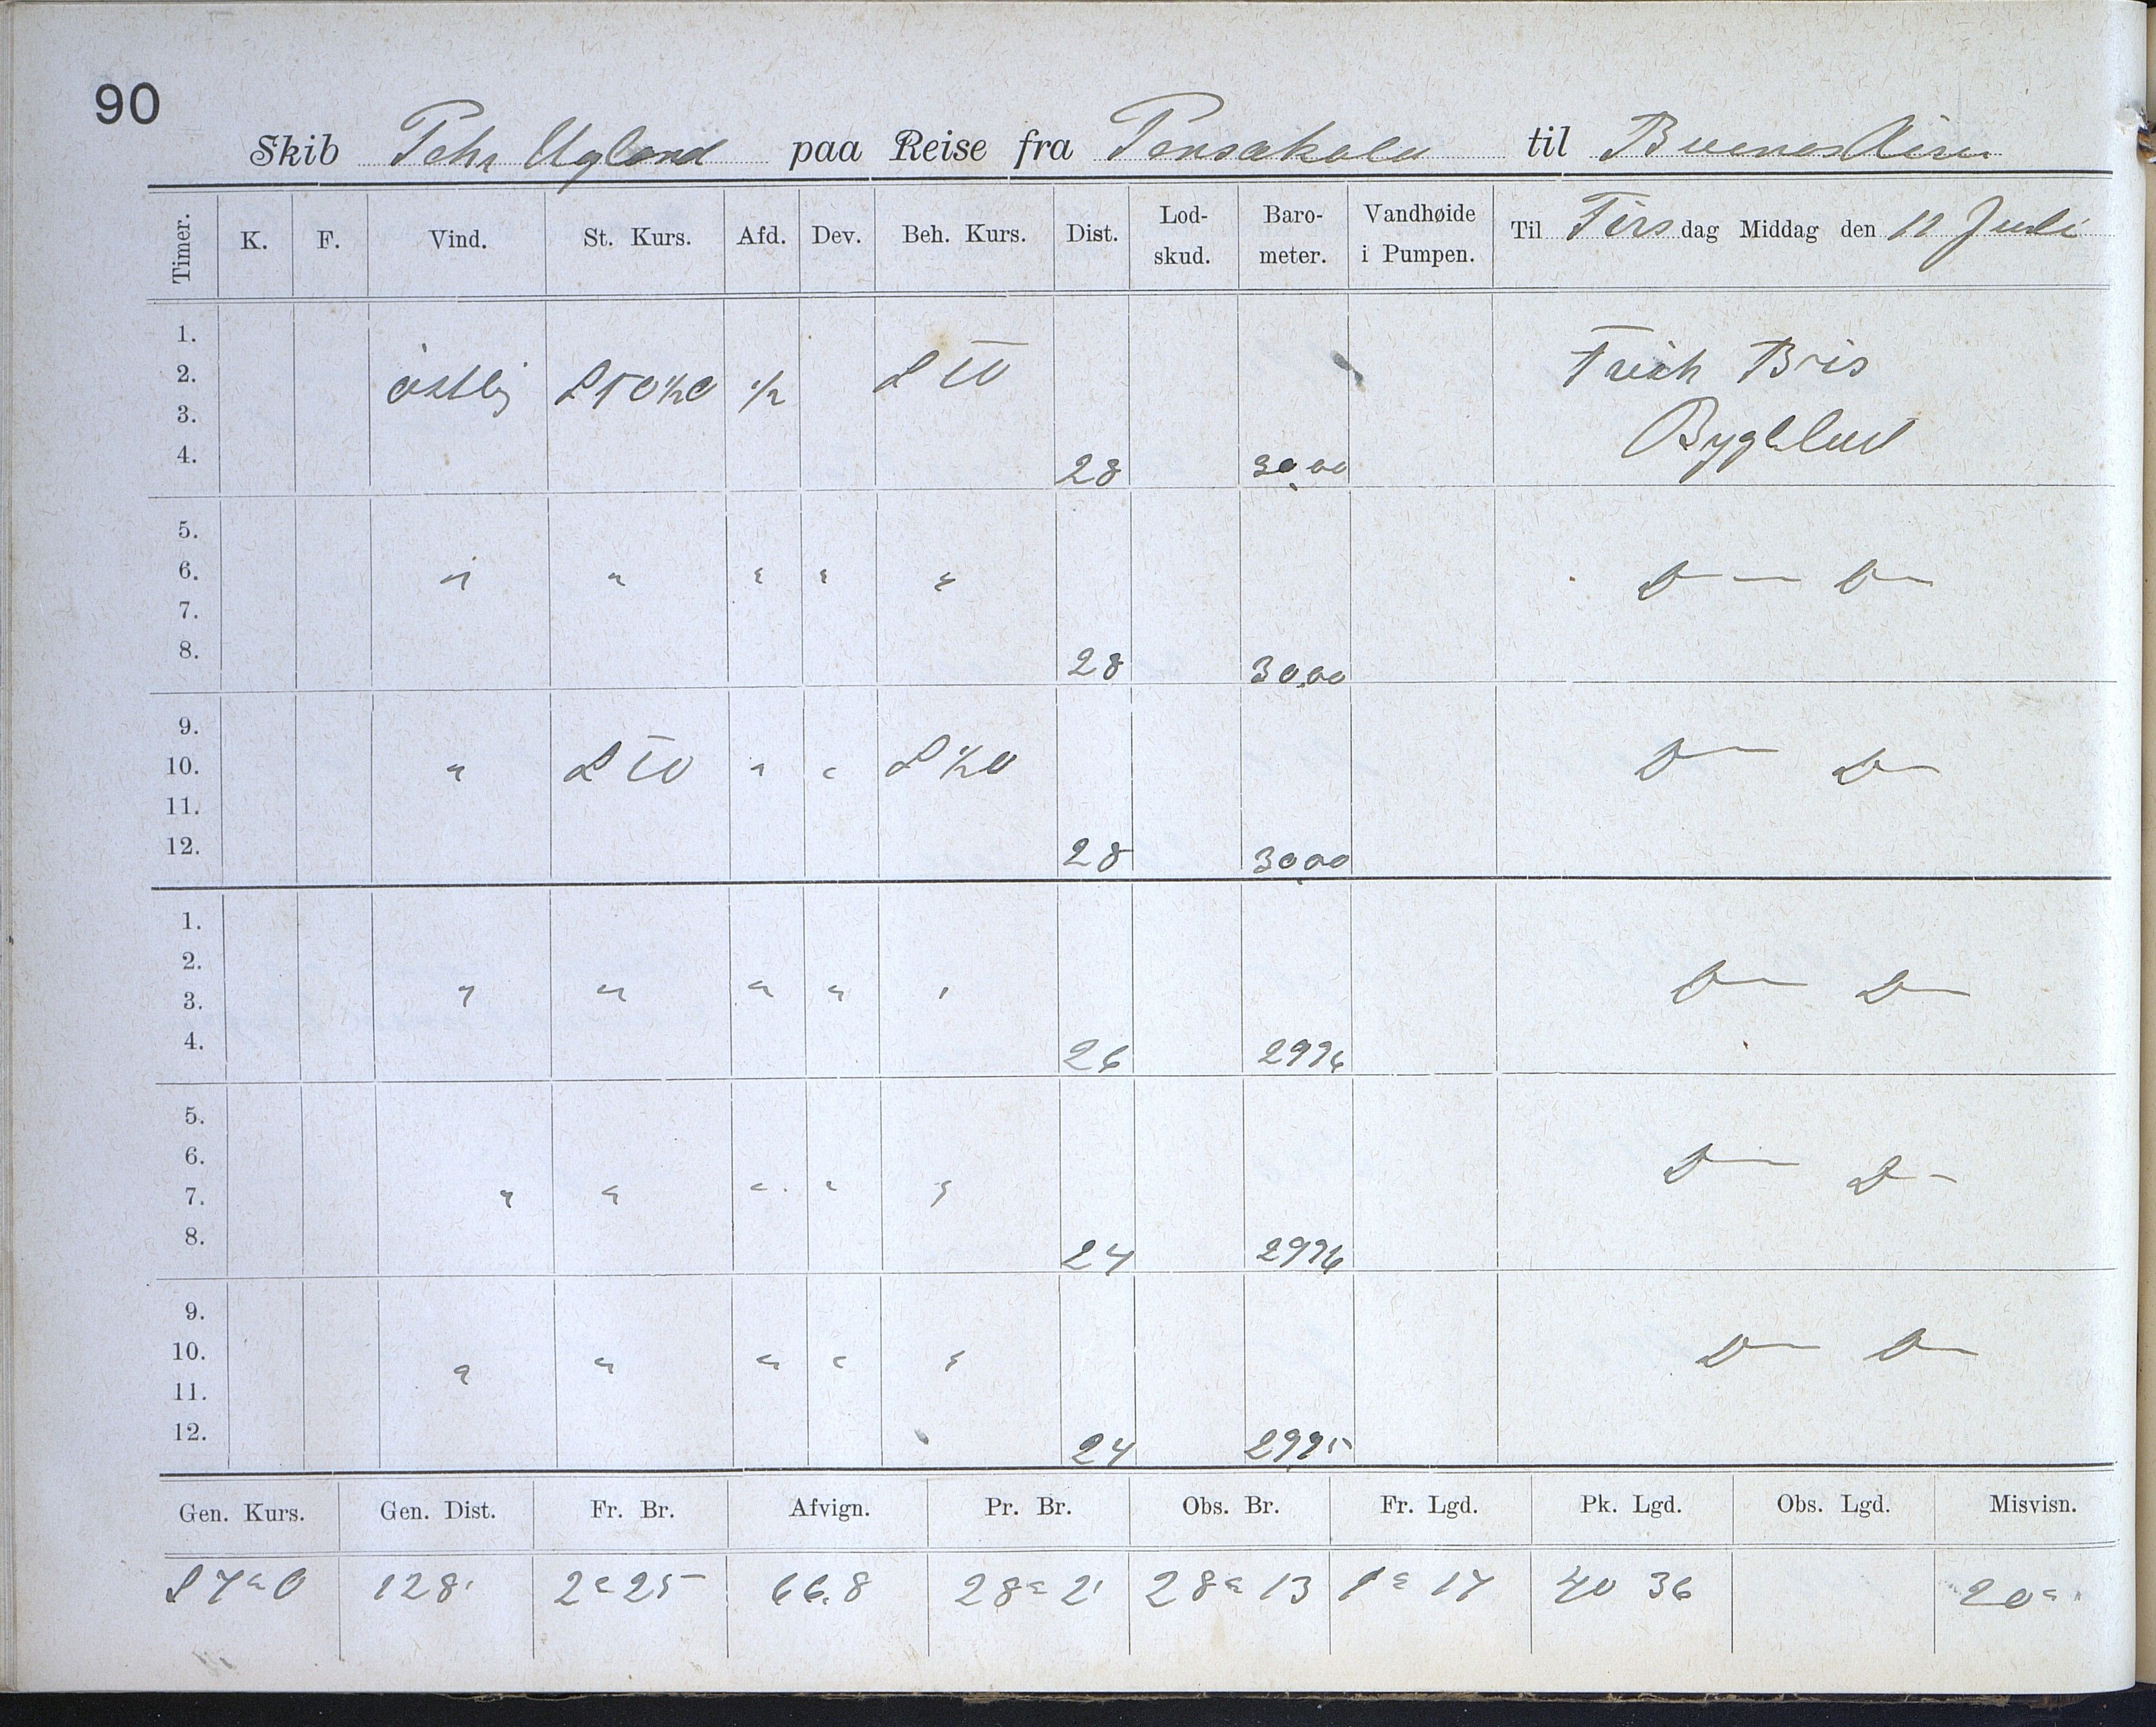 90
Skib Pehr Ugland paa Reise fra Pensakola til Buenos Aires
Timer. K. F. Vind. St. Kurs. Afd. Dev. Beh. Kurs. Dist. Lod-skud. Baro-meter. Vandhøide i Pumpen. Til Tirsdag Middag den 11 Juli
1.
2. östlig S T O ½ O ½ S T O Frisk Bris
3.
4. 28 30,00
5.
6. " " " " " D — D —
7.
8. 28 30,00
9.
10. " S T O " " S ½ O D — D —
11.
12. 28 30,00
1.
2.
3. " " " " " D — D —
4. 26 2996
5.
6. D — D —
7. " " " " "
8. 24 2996
9.
10. " " " " " D — D —
11.
12. 24 2995
Gen. Kurs. Gen. Dist. Fr. Br. Afvign. Pr. Br. Obs. Br. Fr. Lgd. Pk. Lgd. Obs. Lgd. Misvisn.
128' 2° 25 66,8 28° 2' 28° 13 1° 17 40 36 20°